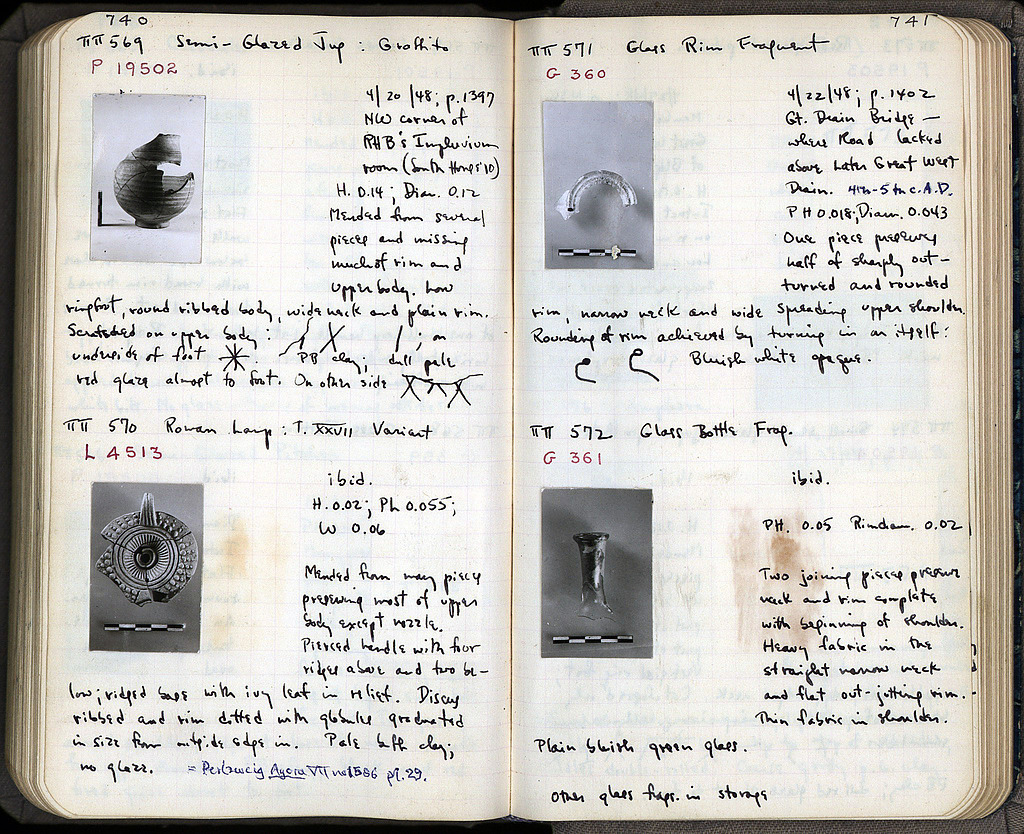 740
ΠΠ 569 Semi-Glazed Jug : Graffito
P 19502
4/20/48; p.1397
NW corner of
RHB's Impluvium
room (South House '10)
H. 0.14; Diam. 0.12
Mended from several
pieces and missing
much of rim and
upper body. Low
ringfoot, round ribbed body, wide neck and plain rim.
Scratched on upper body on
underside of foot PB clay; dull pale
red glaze almost to foot. On other side
ΠΠ 570 Roman Lamp : T. XXVII Variant
L 4513
ibid.
H. 0.02; PL 0.055;
W 0.06
Mended from many pieces
preserving most of upper
body except nozzle.
Pierced handle with four
ridges above and two be-
low; ridged base with ivy leaf in relief. Discus
ribbed and rim dotted with globules graduated
in size from outside edge in. Pale buff clay;
no glaze. = Perlzweig Agora VII no 1586 pl. 29.
741
ΠΠ 571 Glass Rim Fragment
G 360
4/22/48; p. 1402
Gt. Drain Bridge —
where Road lacked
above Later Great West
Drain. 4th-5th c. A.D.
PH 0.018; Diam. 0.043
One piece preserves
half of sharply out-
turned and rounded
rim, narrow neck and wide spreading upper shoulder.
Rounding of rim achieved by turning in on itself:
Bluish white opaque.
ΠΠ 572 Glass Bottle Frag.
G 361
ibid.
PH. 0.05 Rimdiam. 0.02
Two joining pieces preserve
neck and rim complete
with beginning of shoulder.
Heavy fabric in the
straight narrow neck
and flat out-jutting rim.
Thin fabric in shoulder.
Plain bluish green glass.
Other glass frags. in storage